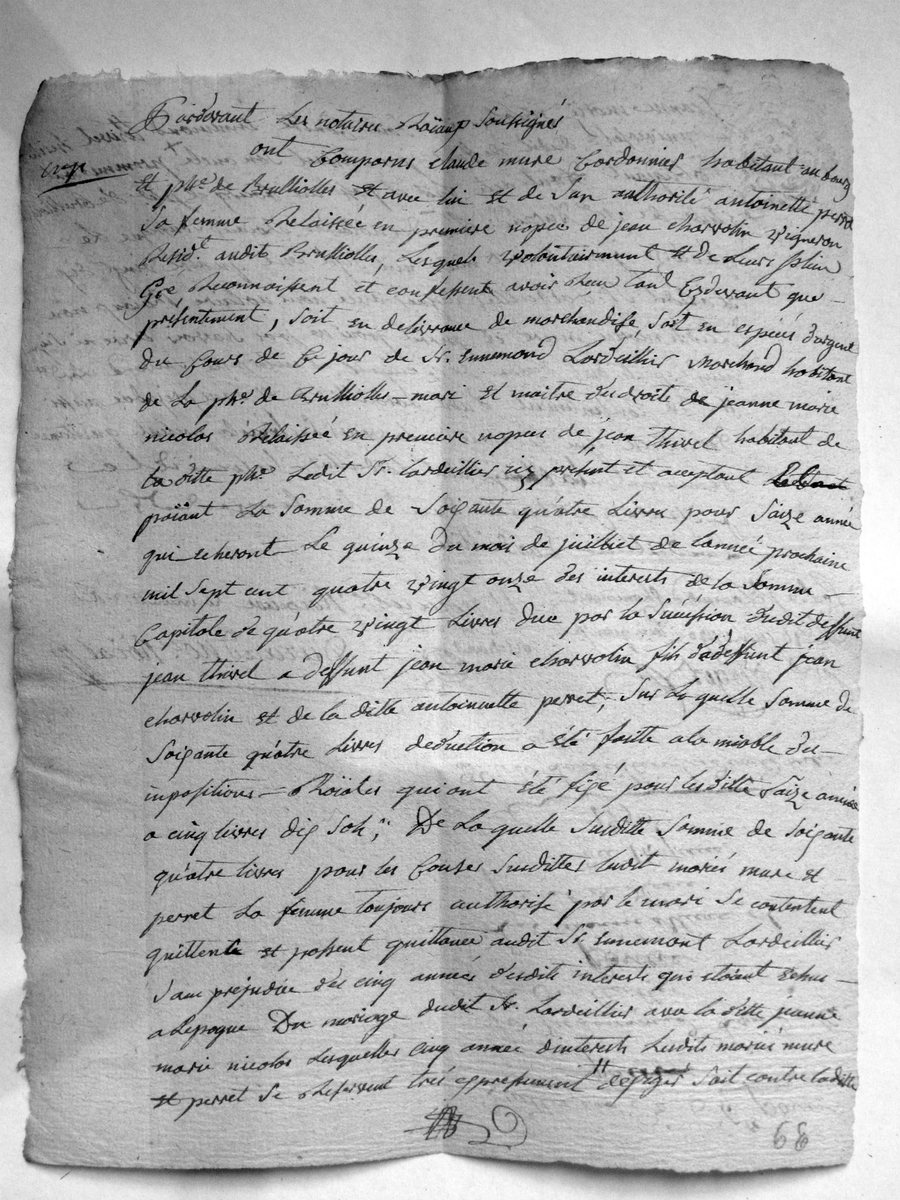 Pardevant Les notaires Roïaux Soussignés
ont Comparus claude mure Cordonnier habitant au bourg
et phe. de Brulliolles et avec lui et de Son authorité antoinette perret
Sa femme Relaissée en premiere nopces de jean charvolin vigneron
Residt. audit Brulliolles, Lesquels volontairement et de Leurs plein
Gré Reconnoissent et confessent avoir Reçu tant Cydevant que
présentement, Soit en delivrance de marchandise, Soit en especes d'argent
du Cours de Ce jour de Sr. Ennemond Lardeillier Marchand habitant
de La phe. de Brulliolles - mari et maitre des droits de jeanne marie
nicolas Relaissée en premiere nopces de jean thivel habitant de
La ditte phe. Ledit Sr. Lardeillier icy présent et aceptant
païant La Somme de Soixante quatre Livres pour Saize année
qui echeront Le quinze du mois de juilliet de L'année prochaine
mil Sept cent quatre vingt onze des interets de la Somme
Capitale de quatre vingt Livres due par la Succession dudit deffunt
jean thivel a deffunt jean marie charvolin fils dudeffunt jean
charvolin et de la ditte antoinette perret, Sur La quelle Somme de
Soixante quatre Livres deduction a été faitte a la des
inpositions - Roïales qui ont été fixé pour lesditte Saize années
a cinq livres dix Sols, De La quelle Susditte Somme de Soixante
quatre livres pour les Causes Susdittes Ledit mariés mure et
perret La femme toujours authorisé par le mari Se contentent
quittent et passent quittance audit Sr. Ennemont Lardeillier
Sans prejudice des cinq années desdits interets qui etoient Echus
a Lepoque Du mariage dudit Sr. Lardeillier avec la ditte jeanne
marie nicolas Lesquelles Cinq année d'interets Lesdits mariés mure
et perret Se Reservent tres expressement d'exiger Soit contre laditte
68